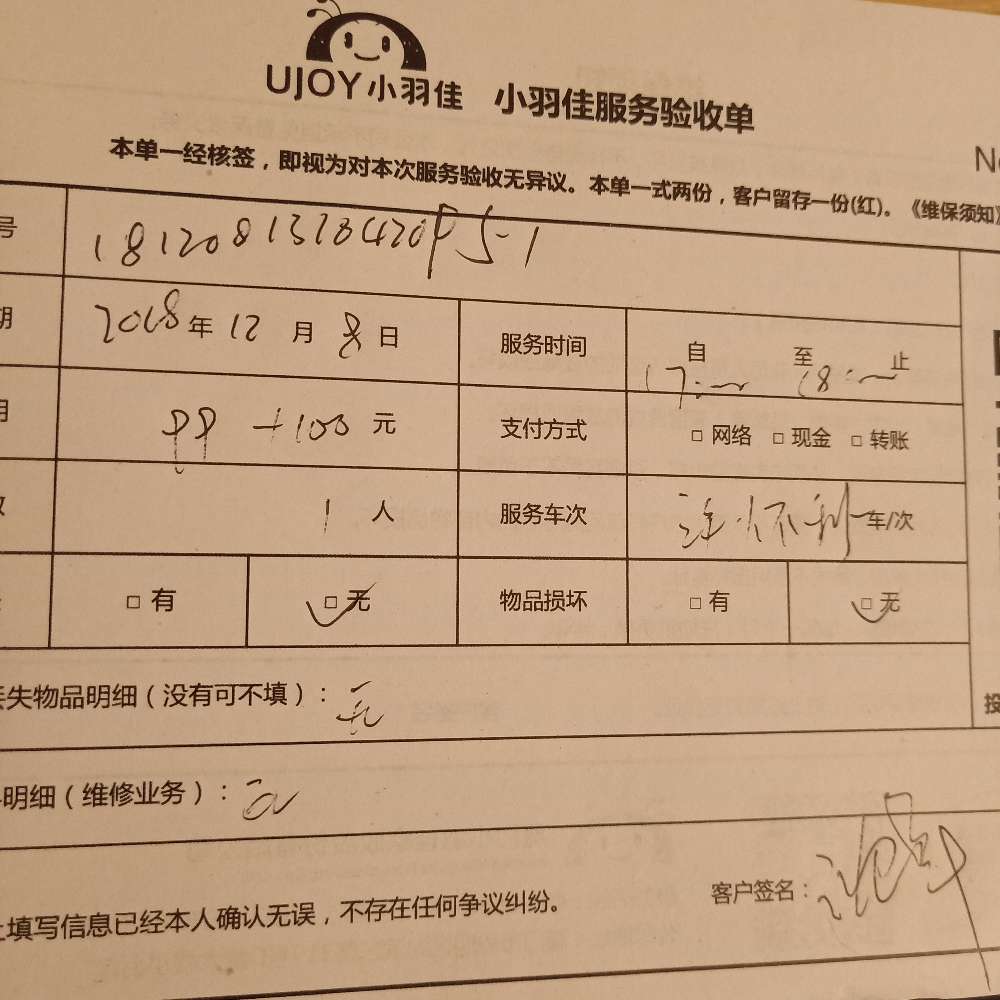 UJOY小羽佳 小羽佳服务验收单
No
本单一经核签，即视为对本次服务验收无异议。本单一式两份，客户留存一份(红)。《维保须知》
号 181208132842095-1
期 2018年12月8日 服务时间 自17:00至18:00止
用 99+100元 支付方式 □网络 □现金 □转账
数 1人 服务车次 车/次
□有 □无 物品损坏 □有 □无
丢失物品明细（没有可不填）：无
明细（维修业务）：
上填写信息已经本人确认无误，不存在任何争议纠纷。 客户签名：
投